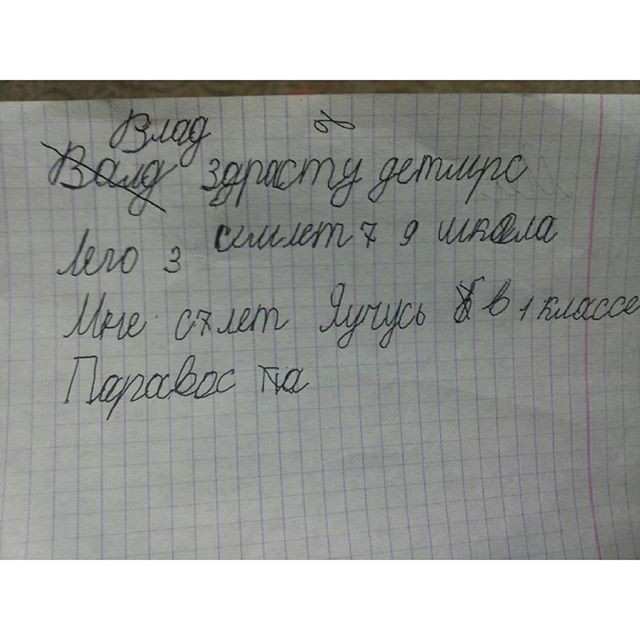 Влад д
Валд здрасту детмирс
Лего 3 симлет 7 9 школа
Мне с7лет Яучусь в 1 классе
Паравос па